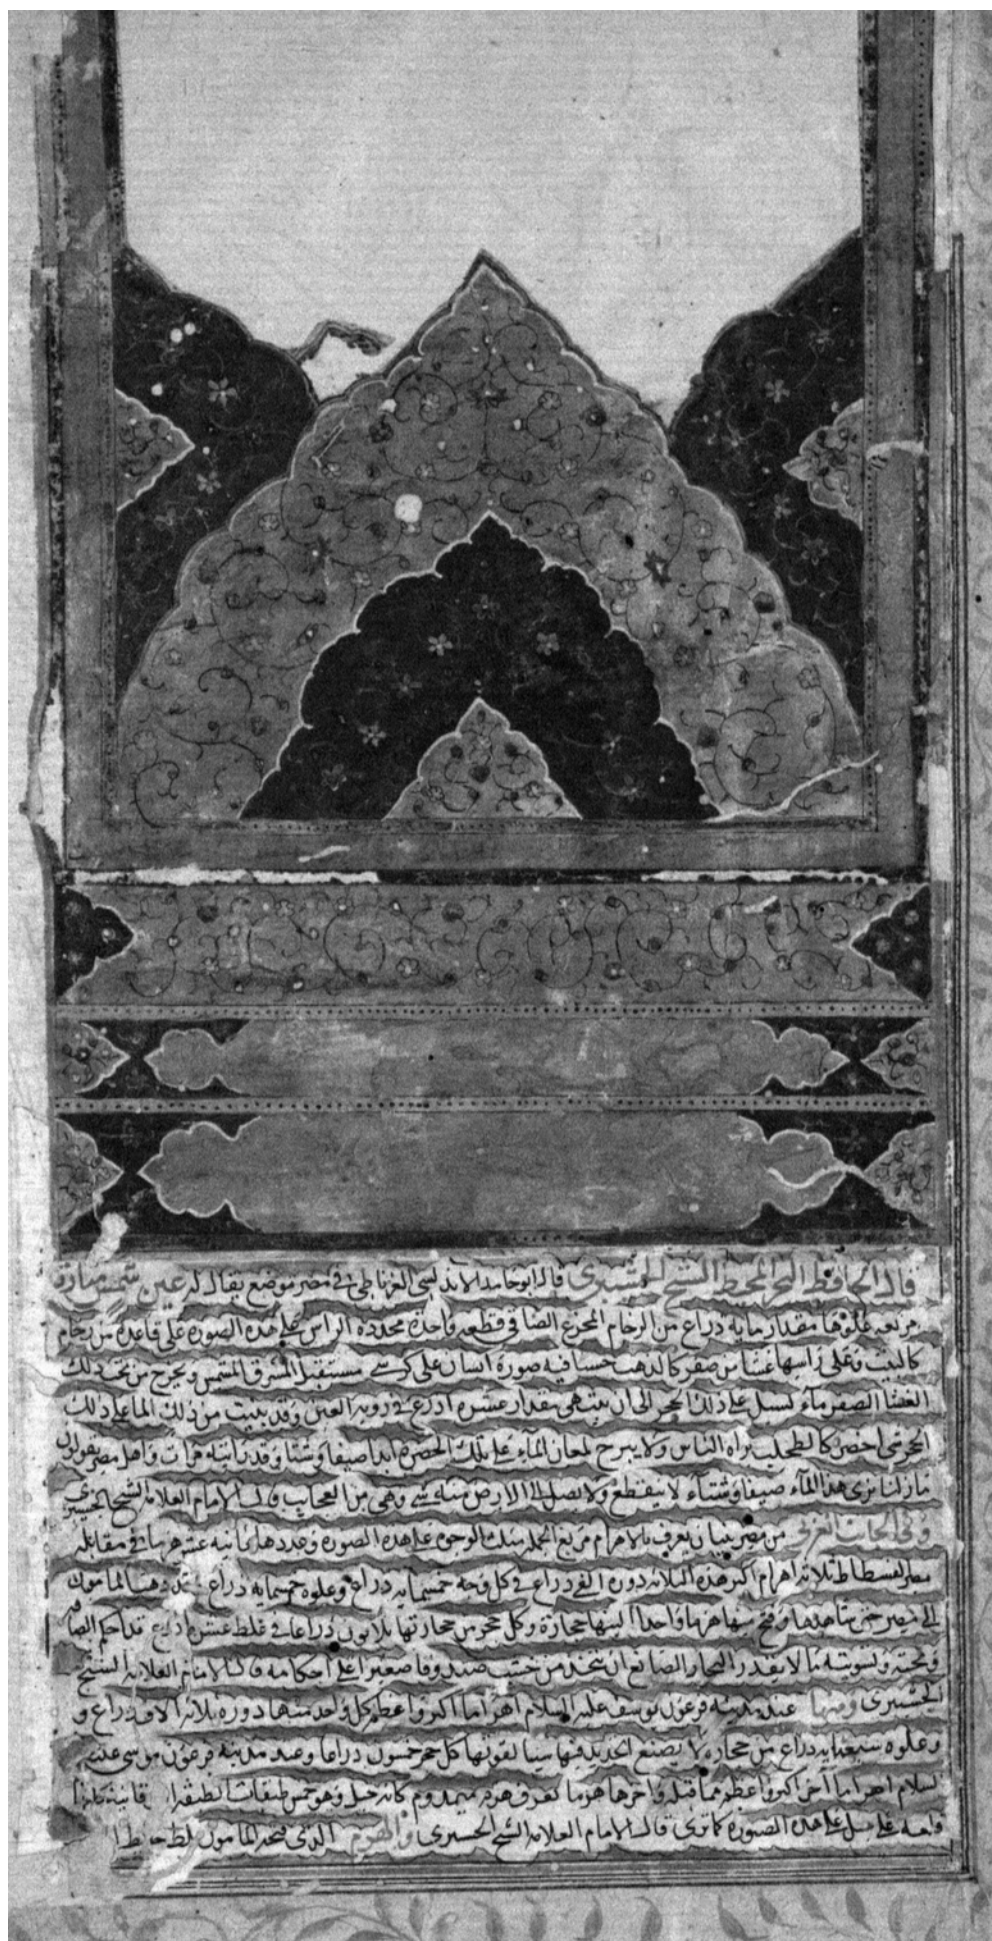 قال الحافظ البحر المحيط الشيخ قال ابو حامد الاندلسي الغرناطي في مصر موضع يقال له عين شمس منارة
مربعه علوها مقدار مايه ذراع من الرخام المجزع الصافي قطعه واحدة محدده الراس على هذه الصورة على قاعدة من رخام
كالبيت وعلى راسها غشا من صفر كالذهب حسنا فيه صورة انسان على كرسي مستقبل المشرق ويخرج من تحت ذلك
الغشا الصفر ماء يسيل على ذلك الحجر الى ان ينتهي مقدار عشرة اذرع في روية العين وقد ينبت من ذلك الما على ذلك
الحجر شي اخضر كالطحلب يراه الناس ولا يبرح لمعان الماء على تلك الخضرة ابدا صيفا وشتا وقد رايته مرات واهل مصر يقولون
ما زلنا نرى هذا الماء صيفا وشتاء لا ينقطع ولا يصل الى الارض منه شي وهي من العجايب قال الامام العلامه الشيخ
وفي الجانب الغربي من مصر بنيان يعرف بالاهرام مربع الجملة مثلث الوجوه على هذه الصورة وعددها ثمانية عشر هرما في مقابلة
مصر الفسطاط ثلاثة اهرام اكبر هذه الثلاثة دوره الفي ذراع في كل وجه خمسمايه ذراع وعلوه خمسمايه ذراع المامون
الى مصر حتى شاهدها وفتح منها هرما واحدا حجارة وكل حجر من حجارتها ثلاثون ذراعا في غلظ عشرة اذرع قد احكم
ونحته وتسويته ما لا يقدر النجار الصانع ان يتخذ من خشب على احكامه قال الامام العلامه الشيخ
ومنها عند مدينة فرعون يوسف عليه السلام اهراما اكبر واعظم كل واحد منها دوره ثلاثة الاف ذراع و
وعلوه سبعمايه ذراع من حجارة لا يصنع الحديد فيها شيا لقوتها كل حجر خمسون ذراعا وعند مدينة فرعون موسى عليه
السلام اهراما اخر اكبر واعظم مما قبله واخرها هرما يعرف هرم ميدوم كانه جبل وهو خمس طبقات
على جبل على هذه الصورة كما ترى قال الامام العلامه الشيخ والهرم الذي فتحه المامون